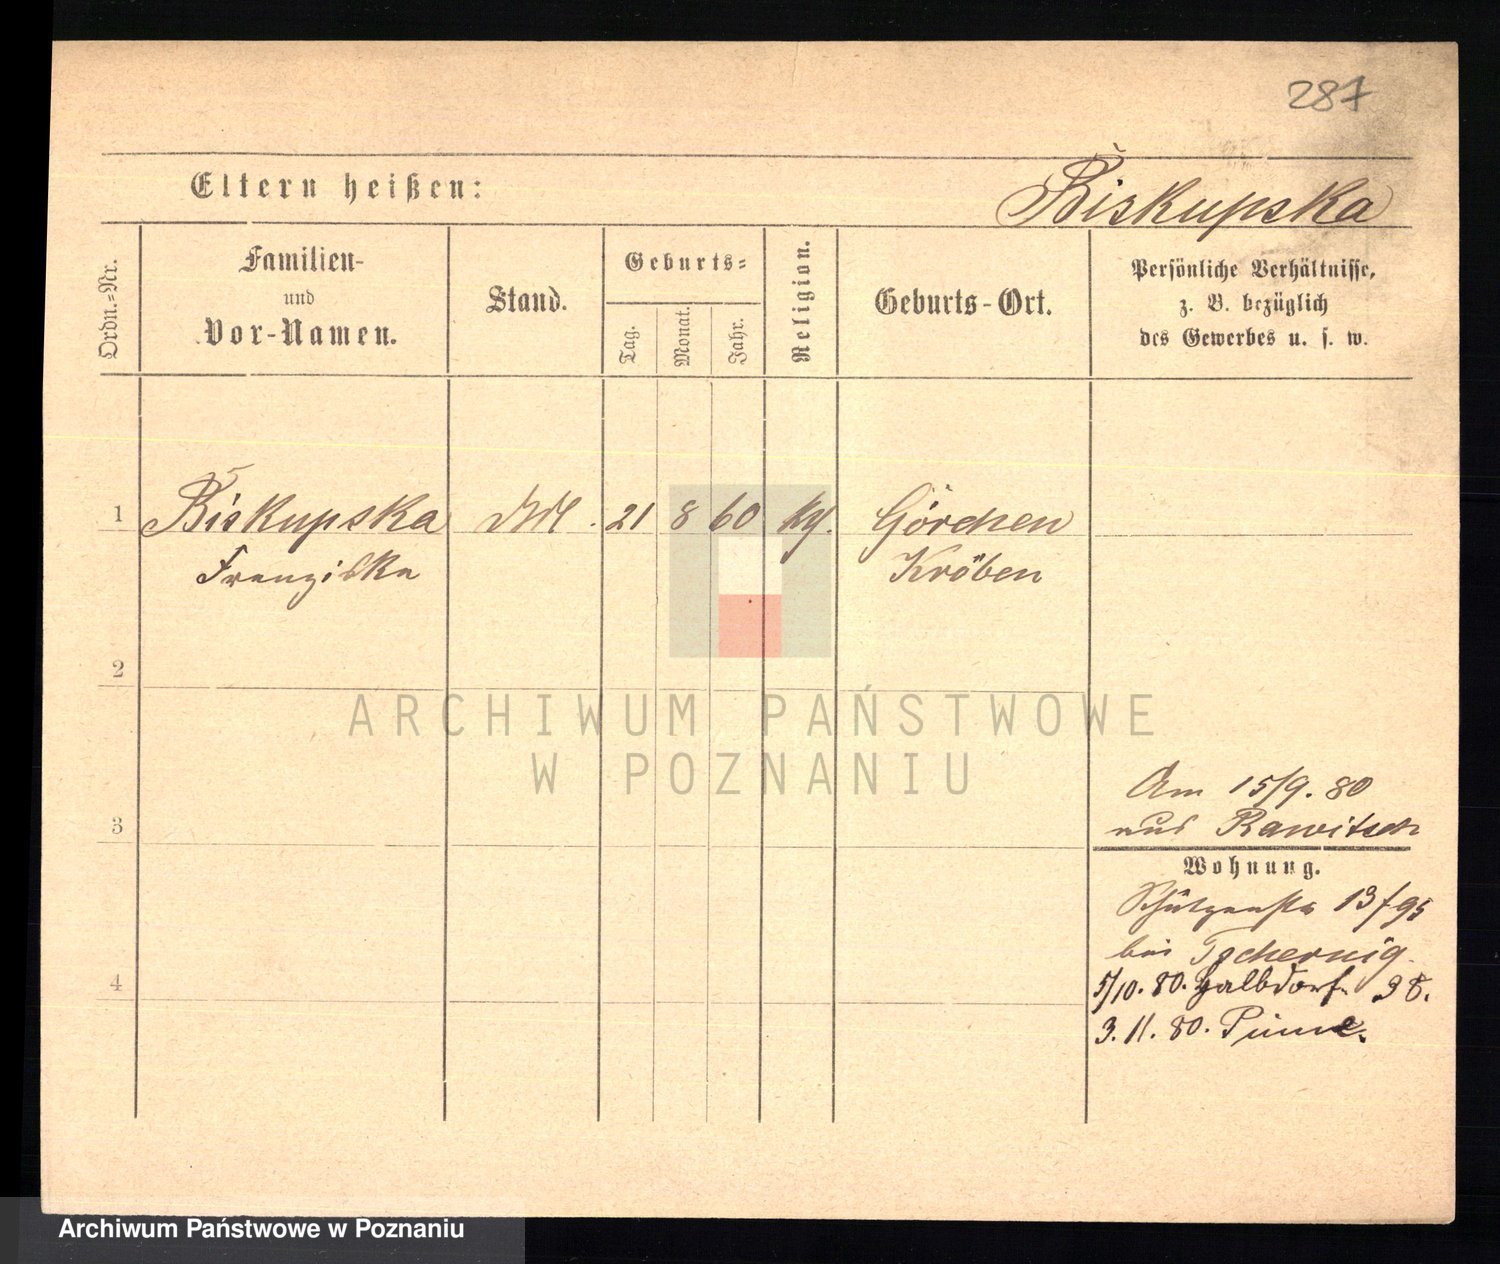 287
Eltern heißen:
Biskupska
Ordn.-Nr.
Familien-
und
Vor-Namen.
Stand.
Geburts-
Tag.
Monat.
Jahr.
Religion.
Geburts-Ort.
Persönliche Verhältnisse,
z. B. bezüglich
des Gewerbes u. s. w.
1 Biskupska 21 8 60 Görchen
Franziska Kröben
2
ARCHIWUM PAŃSTWOWE
W POZNANIU
Am 15/9. 80
3
aus Rawitsch
Wohnung.
Schützenstr 13/95
bei Tschernig.
4
5/10. 80. Halbdorf 38.
3. 11. 80. Pinne.
Archiwum Państwowe w Poznaniu